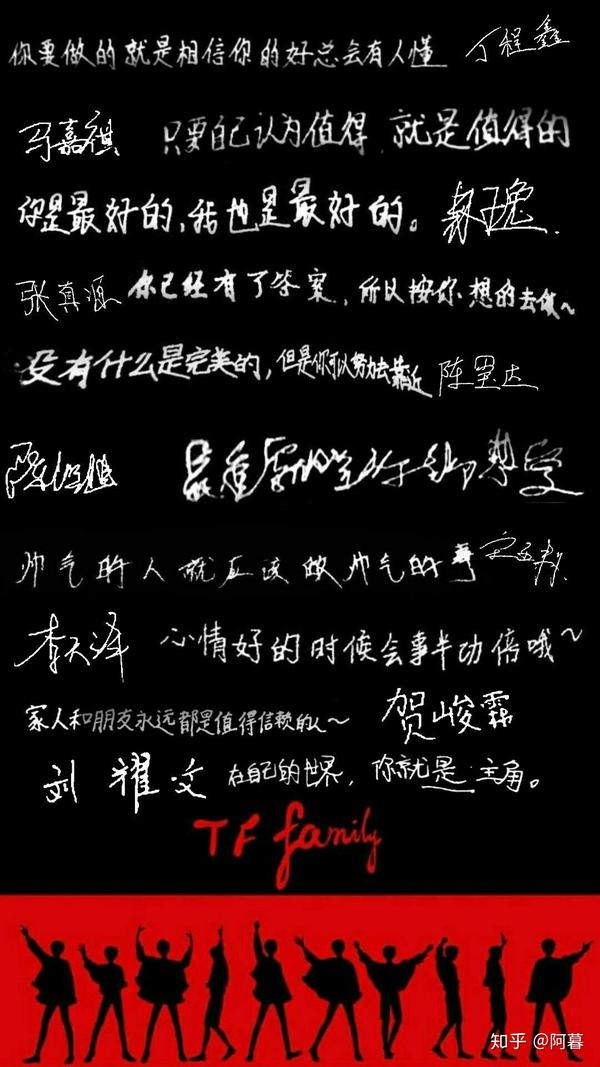 你要做的就是相信你的好总会有人懂 丁程鑫
马嘉祺 只要自己认为值得 就是值得的
你是最好的,我也是最好的。 敖子逸
张真源 你已经有了答案,所以按你想的去做~
没有什么是完美的,但是你可以努力去靠近 陈玺达
陈泗旭 最重要的 享受
帅气的人就应该做帅气的事 宋亚轩
李天泽 心情好的时候会事半功倍哦~
家人和朋友永远都是值得信赖的人~ 贺峻霖
刘耀文 在自己的世界,你就是主角。
TF family
知乎 @阿暮